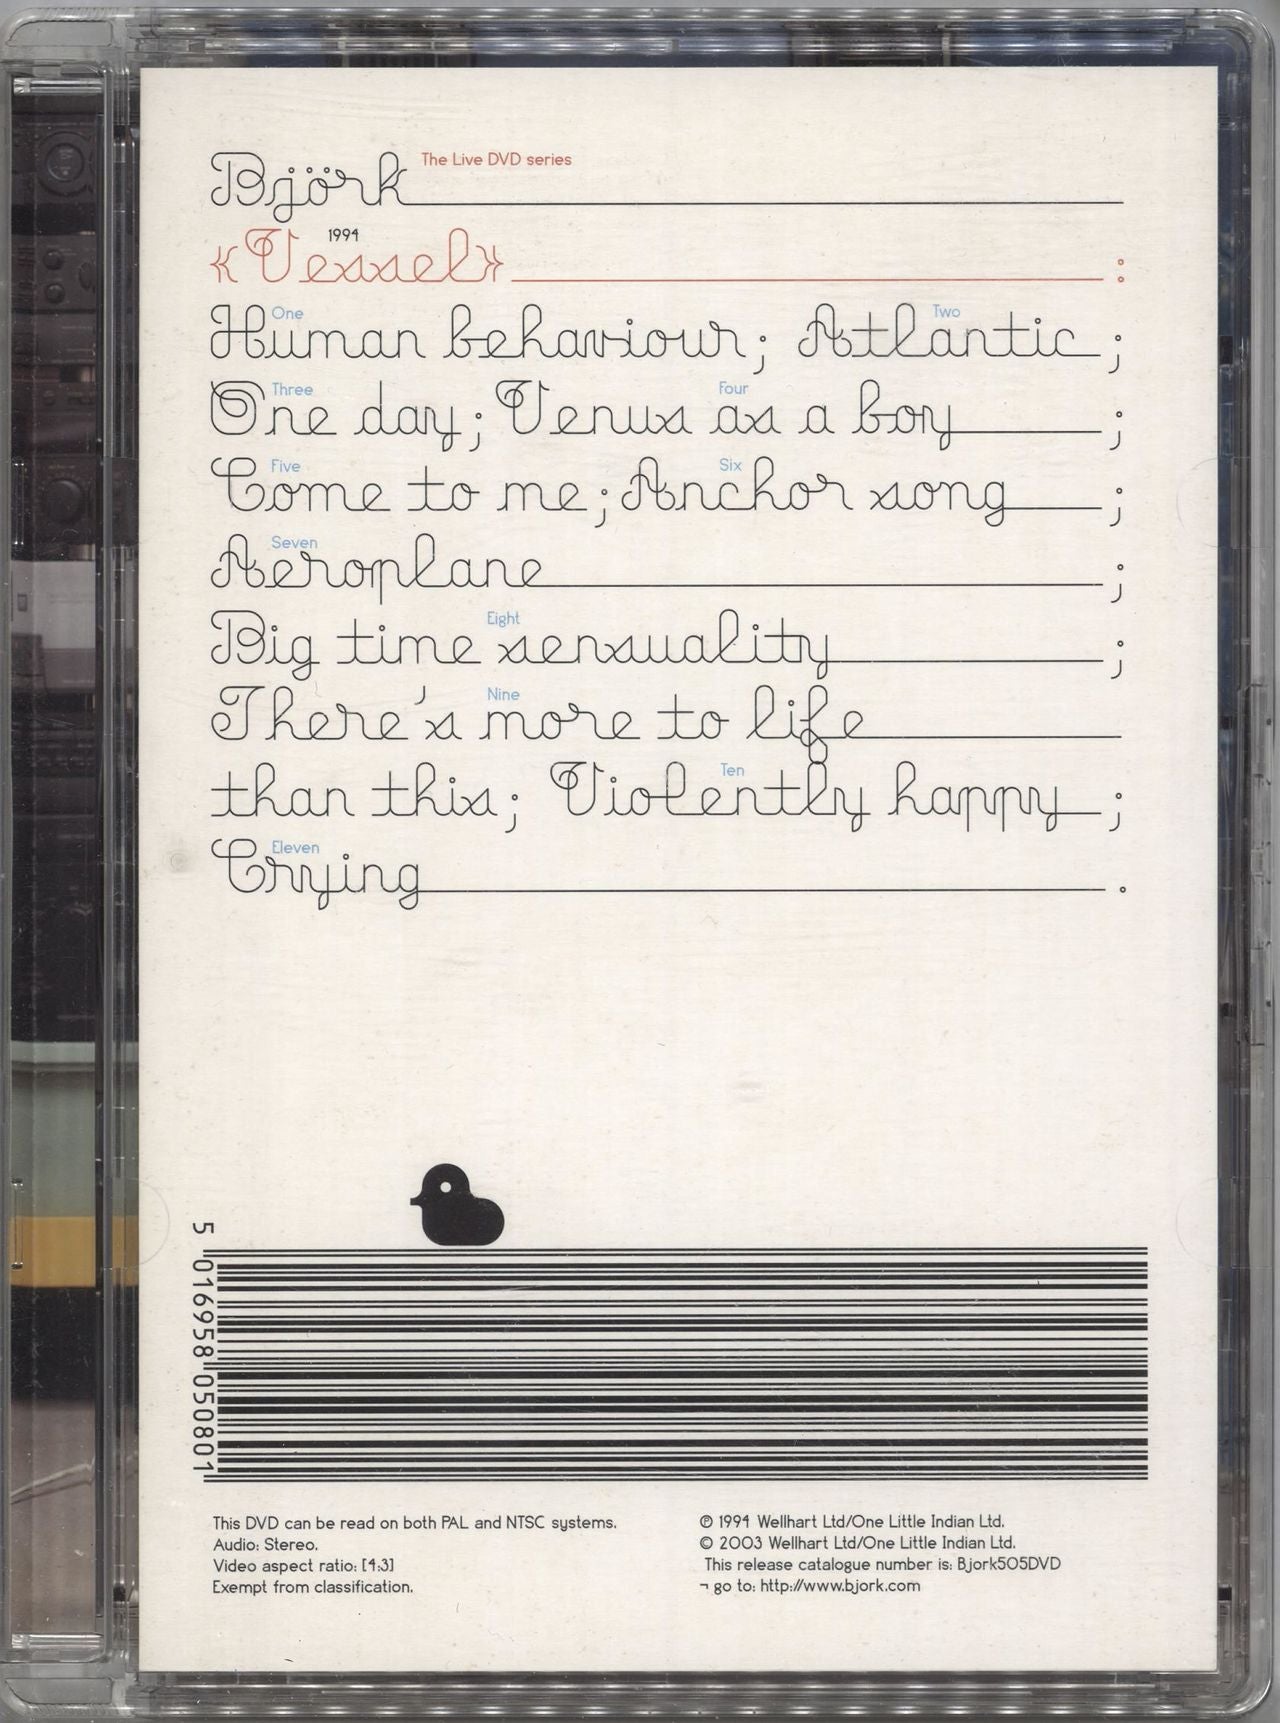 Björk The Live DVD series
«Vessel» 1994 :
One Two
Human behaviour; Atlantic;
Three Four
One day; Venus as a boy;
Five Six
Come to me; Anchor song;
Seven
Aeroplane;
Eight
Big time sensuality;
Nine
There's more to life
Ten
than this; Violently happy;
Eleven
Crying.
5 016958 050801
This DVD can be read on both PAL and NTSC systems.
Audio: Stereo.
Video aspect ratio: [4:3]
Exempt from classification.
℗ 1994 Wellhart Ltd/One Little Indian Ltd.
© 2003 Wellhart Ltd/One Little Indian Ltd.
This release catalogue number is: Bjork505DVD
¬ go to: http://www.bjork.com